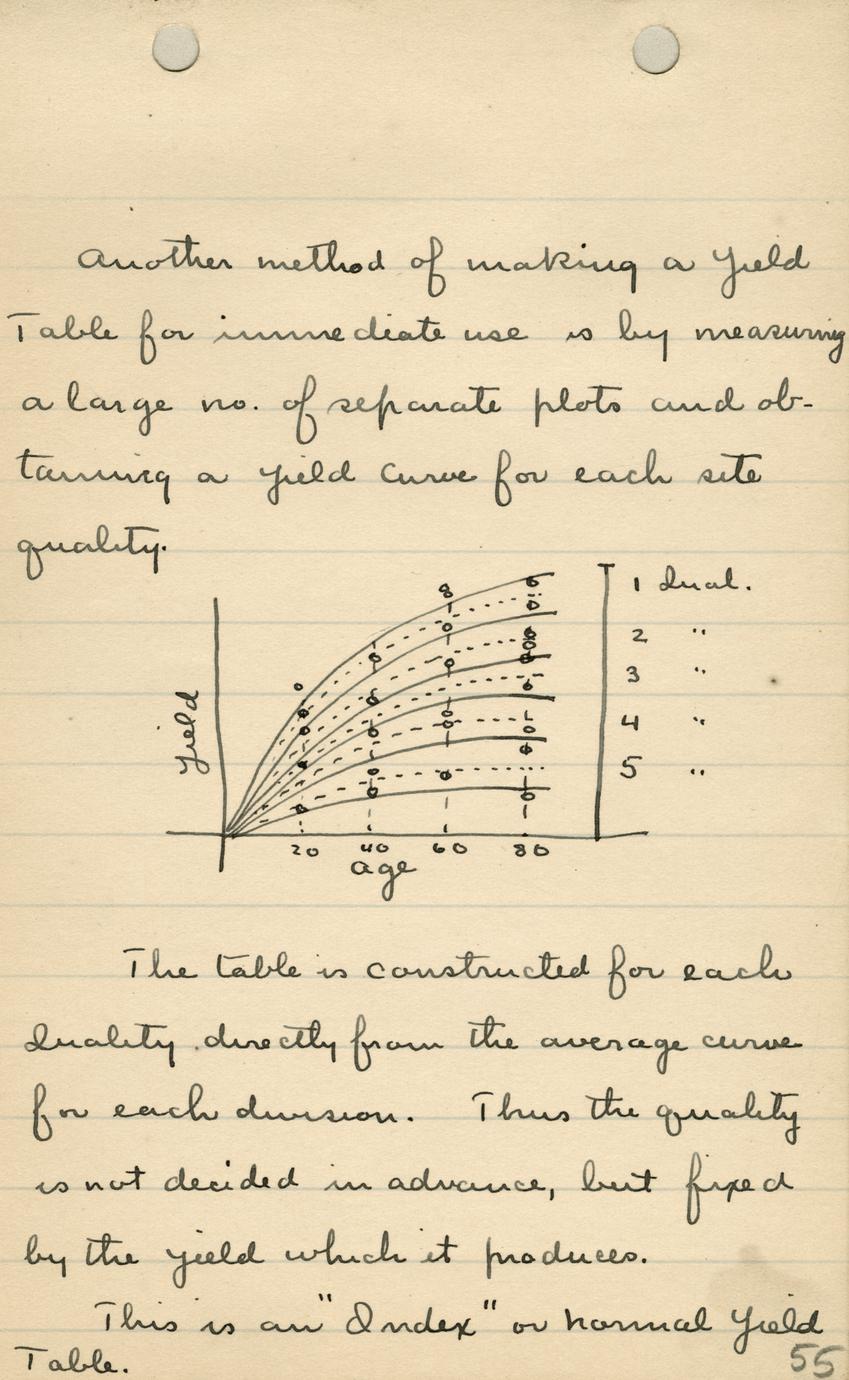 Another method of making a Yield
Table for immediate use is by measuring
a large no. of separate plots and ob-
taining a yield curve for each site
quality.
1 Qual.
2 "
3 "
4 "
5 "
Yield
20 40 60 80
age
The table is constructed for each
Quality directly from the average curve
for each division. Thus the quality
is not decided in advance, but fixed
by the yield which it produces.
This is an "Index" or normal Yield
Table.
55